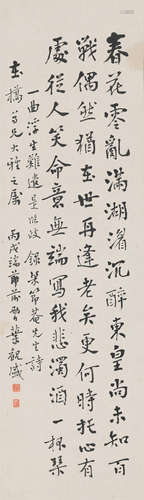 春花零亂滿湖湄沉醉東皇尚未知百
戰偶然猶在世再逢老矣更何時托心有
處從人笑命意無端寫我悲濁酒一杯琴
一曲浮生難遠是臨歧 錄梁節庵先生詩
玉橋吾兄大雅之屬
丙戌端節前 葉觀盛